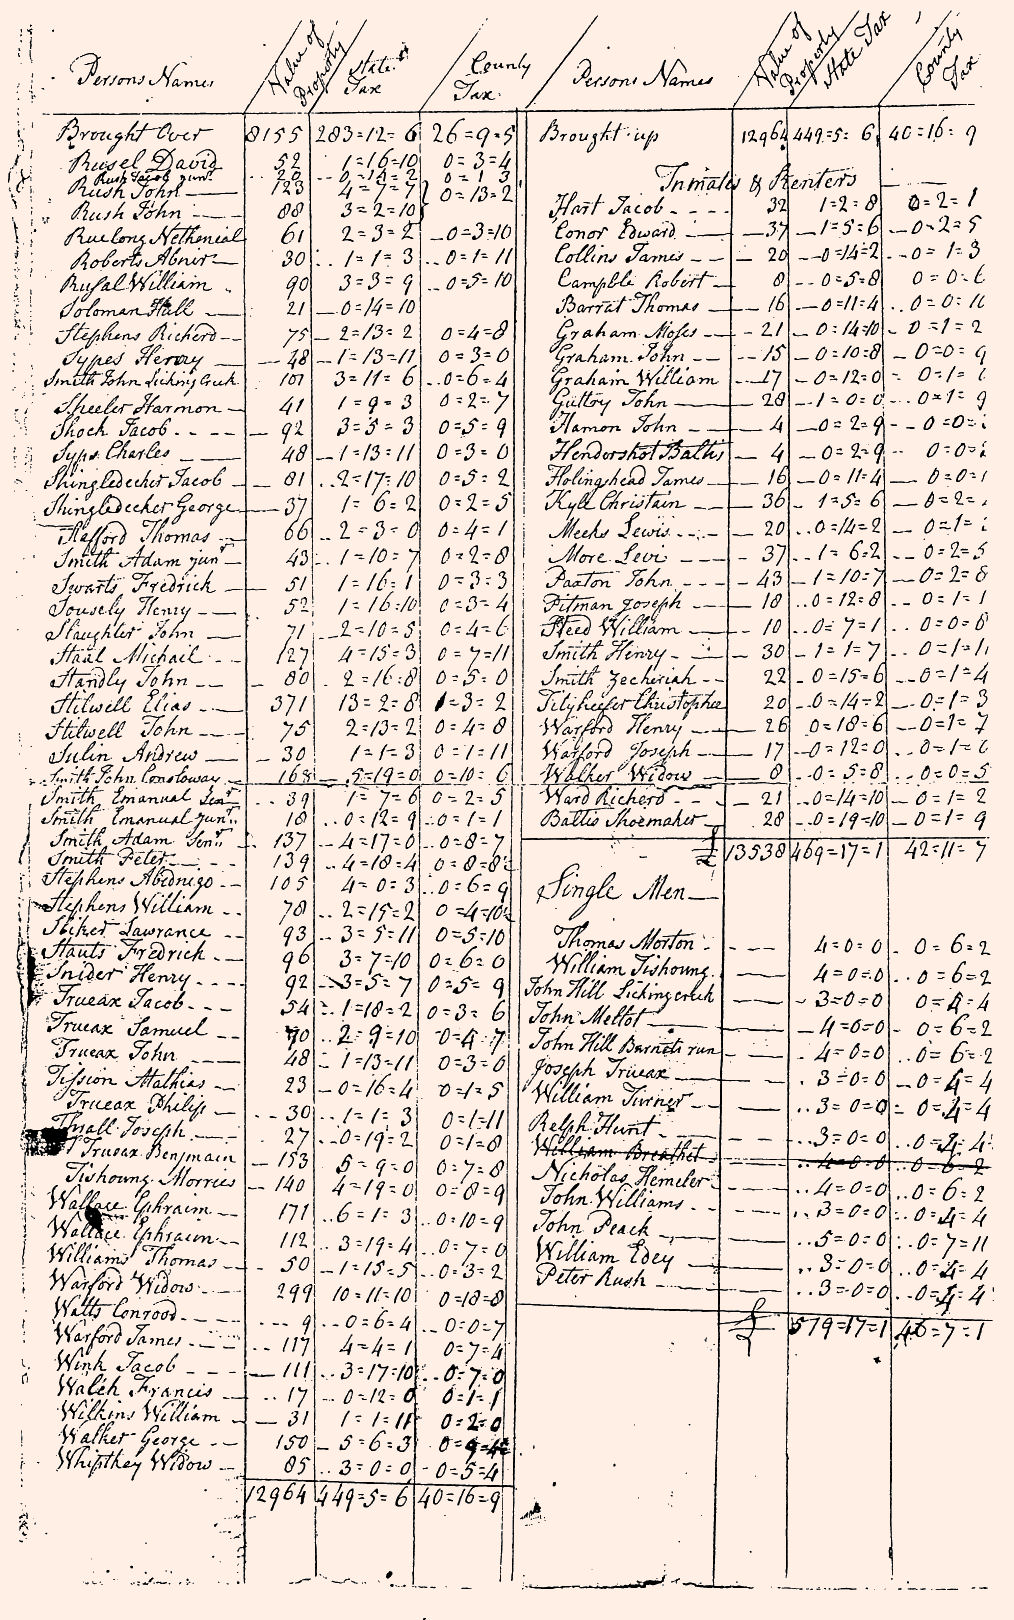 Persons Names Value of Property State Tax County Tax
Brought Over 8155 283=12=6 26=9=5
Rusel David 52 1=16=10 0=3=4
Rush Jacob junr 20 0=14=2 0=1=3
Rush John 123 4=7=7 0=13=2
Rush John 88 3=2=10
Ruelong Nethenial 61 2=3=2 0=3=10
Roberts Abnir 30 1=1=3 0=1=11
Rusal William 90 3=3=9 0=5=10
Soloman Hall 21 0=14=10
Stephens Richerd 75 2=13=2 0=4=8
Sypes Henry 48 1=13=11 0=3=0
Smith John Licking Creek 101 3=11=6 0=6=4
Speeler Harmon 41 1=9=3 0=2=7
Shock Jacob 92 3=5=3 0=5=9
Syps Charles 48 1=13=11 0=3=0
Shingledecker Jacob 81 2=17=10 0=5=2
Shingledecker George 37 1=6=2 0=2=5
Stafford Thomas 66 2=3=0 0=4=1
Smith Adam junr 43 1=10=7 0=2=8
Swarts Fredrick 51 1=16=1 0=3=3
Sousely Henry 52 1=16=10 0=3=4
Slaughter John 71 2=10=5 0=4=6
Staal Michail 127 4=15=3 0=7=11
Standly John 80 2=16=8 0=5=0
Stilwell Elias 371 13=2=8 1=3=2
Stilwell John 75 2=13=2 0=4=8
Sulin Andrew 30 1=1=3 0=1=11
Smith John Conoloway 168 5=19=0 0=10=6
Smith Emanual Senr 39 1=7=6 0=2=5
Smith Emanual junr 18 0=12=9 0=1=1
Smith Adam Senr 137 4=17=0 0=8=7
Smith Peter 139 4=18=4 0=8=8
Stephens Abidnigo 105 4=0=3 0=6=9
Stephens William 78 2=15=2 0=4=10
Stiker Lawrance 93 3=5=11 0=5=10
Stauts Fredrick 96 3=7=10 0=6=0
Snider Henry 92 3=5=7 0=5=9
Trueax Jacob 54 1=18=2 0=3=6
Trueax Samuel 70 2=9=10 0=4=7
Trueax John 48 1=13=11 0=3=0
Tission Mathias 23 0=16=4 0=1=5
Trueax Philip 30 1=1=3 0=1=11
Thrall Joseph 27 0=19=2 0=1=8
Trueax Benjmain 153 5=9=0 0=7=8
Tishoung Morries 140 4=19=0 0=8=9
Wallace Ephraim 171 6=1=3 0=10=9
Wallace Ephraim 112 3=19=4 0=7=0
Williams Thomas 50 1=15=5 0=3=2
Warford Widow 299 10=11=10 0=18=8
Watts Conrood 9 0=6=4 0=0=7
Warford James 117 4=4=1 0=7=4
Wink Jacob 111 3=17=10 0=7=0
Walch Francis 17 0=12=0 0=1=1
Wilkins William 31 1=1=11 0=2=0
Walker George 150 5=6=3 0=9=4
Whipkey Widow 85 3=0=0 0=5=4
12964 449=5=6 40=16=9
Persons Names Value of Property State Tax County Tax
Brought up 12964 449=5=6 40=16=9
Inmates & Renters
Hart Jacob 32 1=2=8 0=2=1
Conor Edward 37 1=5=6 0=2=5
Collins James 20 0=14=2 0=1=3
Campble Robert 8 0=5=8 0=0=6
Barrat Thomas 16 0=11=4 0=0=10
Graham Moses 21 0=14=10 0=1=2
Graham John 15 0=10=8 0=0=9
Graham William 17 0=12=0 0=1=
Guttry John 28 1=0=0 0=1=9
Hamon John 4 0=2=9 0=0=
Hendershot Baltis 4 0=2=9 0=0=
Holingshead James 16 0=11=4 0=0=1
Kyll Christain 36 1=5=6 0=2=
Meeks Lewis 20 0=14=2 0=1=
More Levi 37 1=6=2 0=2=5
Paxton John 43 1=10=7 0=2=8
Pitman Joseph 18 0=12=8 0=1=1
Steed William 10 0=7=1 0=0=8
Smith Henry 30 1=1=7 0=1=11
Smith Zechiriah 22 0=15=6 0=1=4
Tilyheifer Christopher 20 0=14=2 0=1=3
Warford Henry 26 0=18=6 0=1=7
Warford Joseph 17 0=12=0 0=1=0
Walker Widow 8 0=5=8 0=0=5
Ward Richerd 21 0=14=10 0=1=2
Baltis Shoemaker 28 0=19=10 0=1=9
£ 13538 469=17=1 42=11=7
Single Men
Thomas Morton 4=0=0 0=6=2
William Tishoung 4=0=0 0=6=2
John Hill Licking creek 3=0=0 0=4=4
John Meltot 4=0=0 0=6=2
John Hill Barnets run 4=0=0 0=6=2
Joseph Trueax 3=0=0 0=4=4
William Turner 3=0=0 0=4=4
Relph Hunt 3=0=0 0=4=4
William Breathet 4=0=0 0=6=2
Nicholas Hemeler 4=0=0 0=6=2
John Williams 3=0=0 0=4=4
John Peack 5=0=0 0=7=11
William Edey 3=0=0 0=4=4
Peter Rush 3=0=0 0=4=4
£ 519=17=1 46=7=1